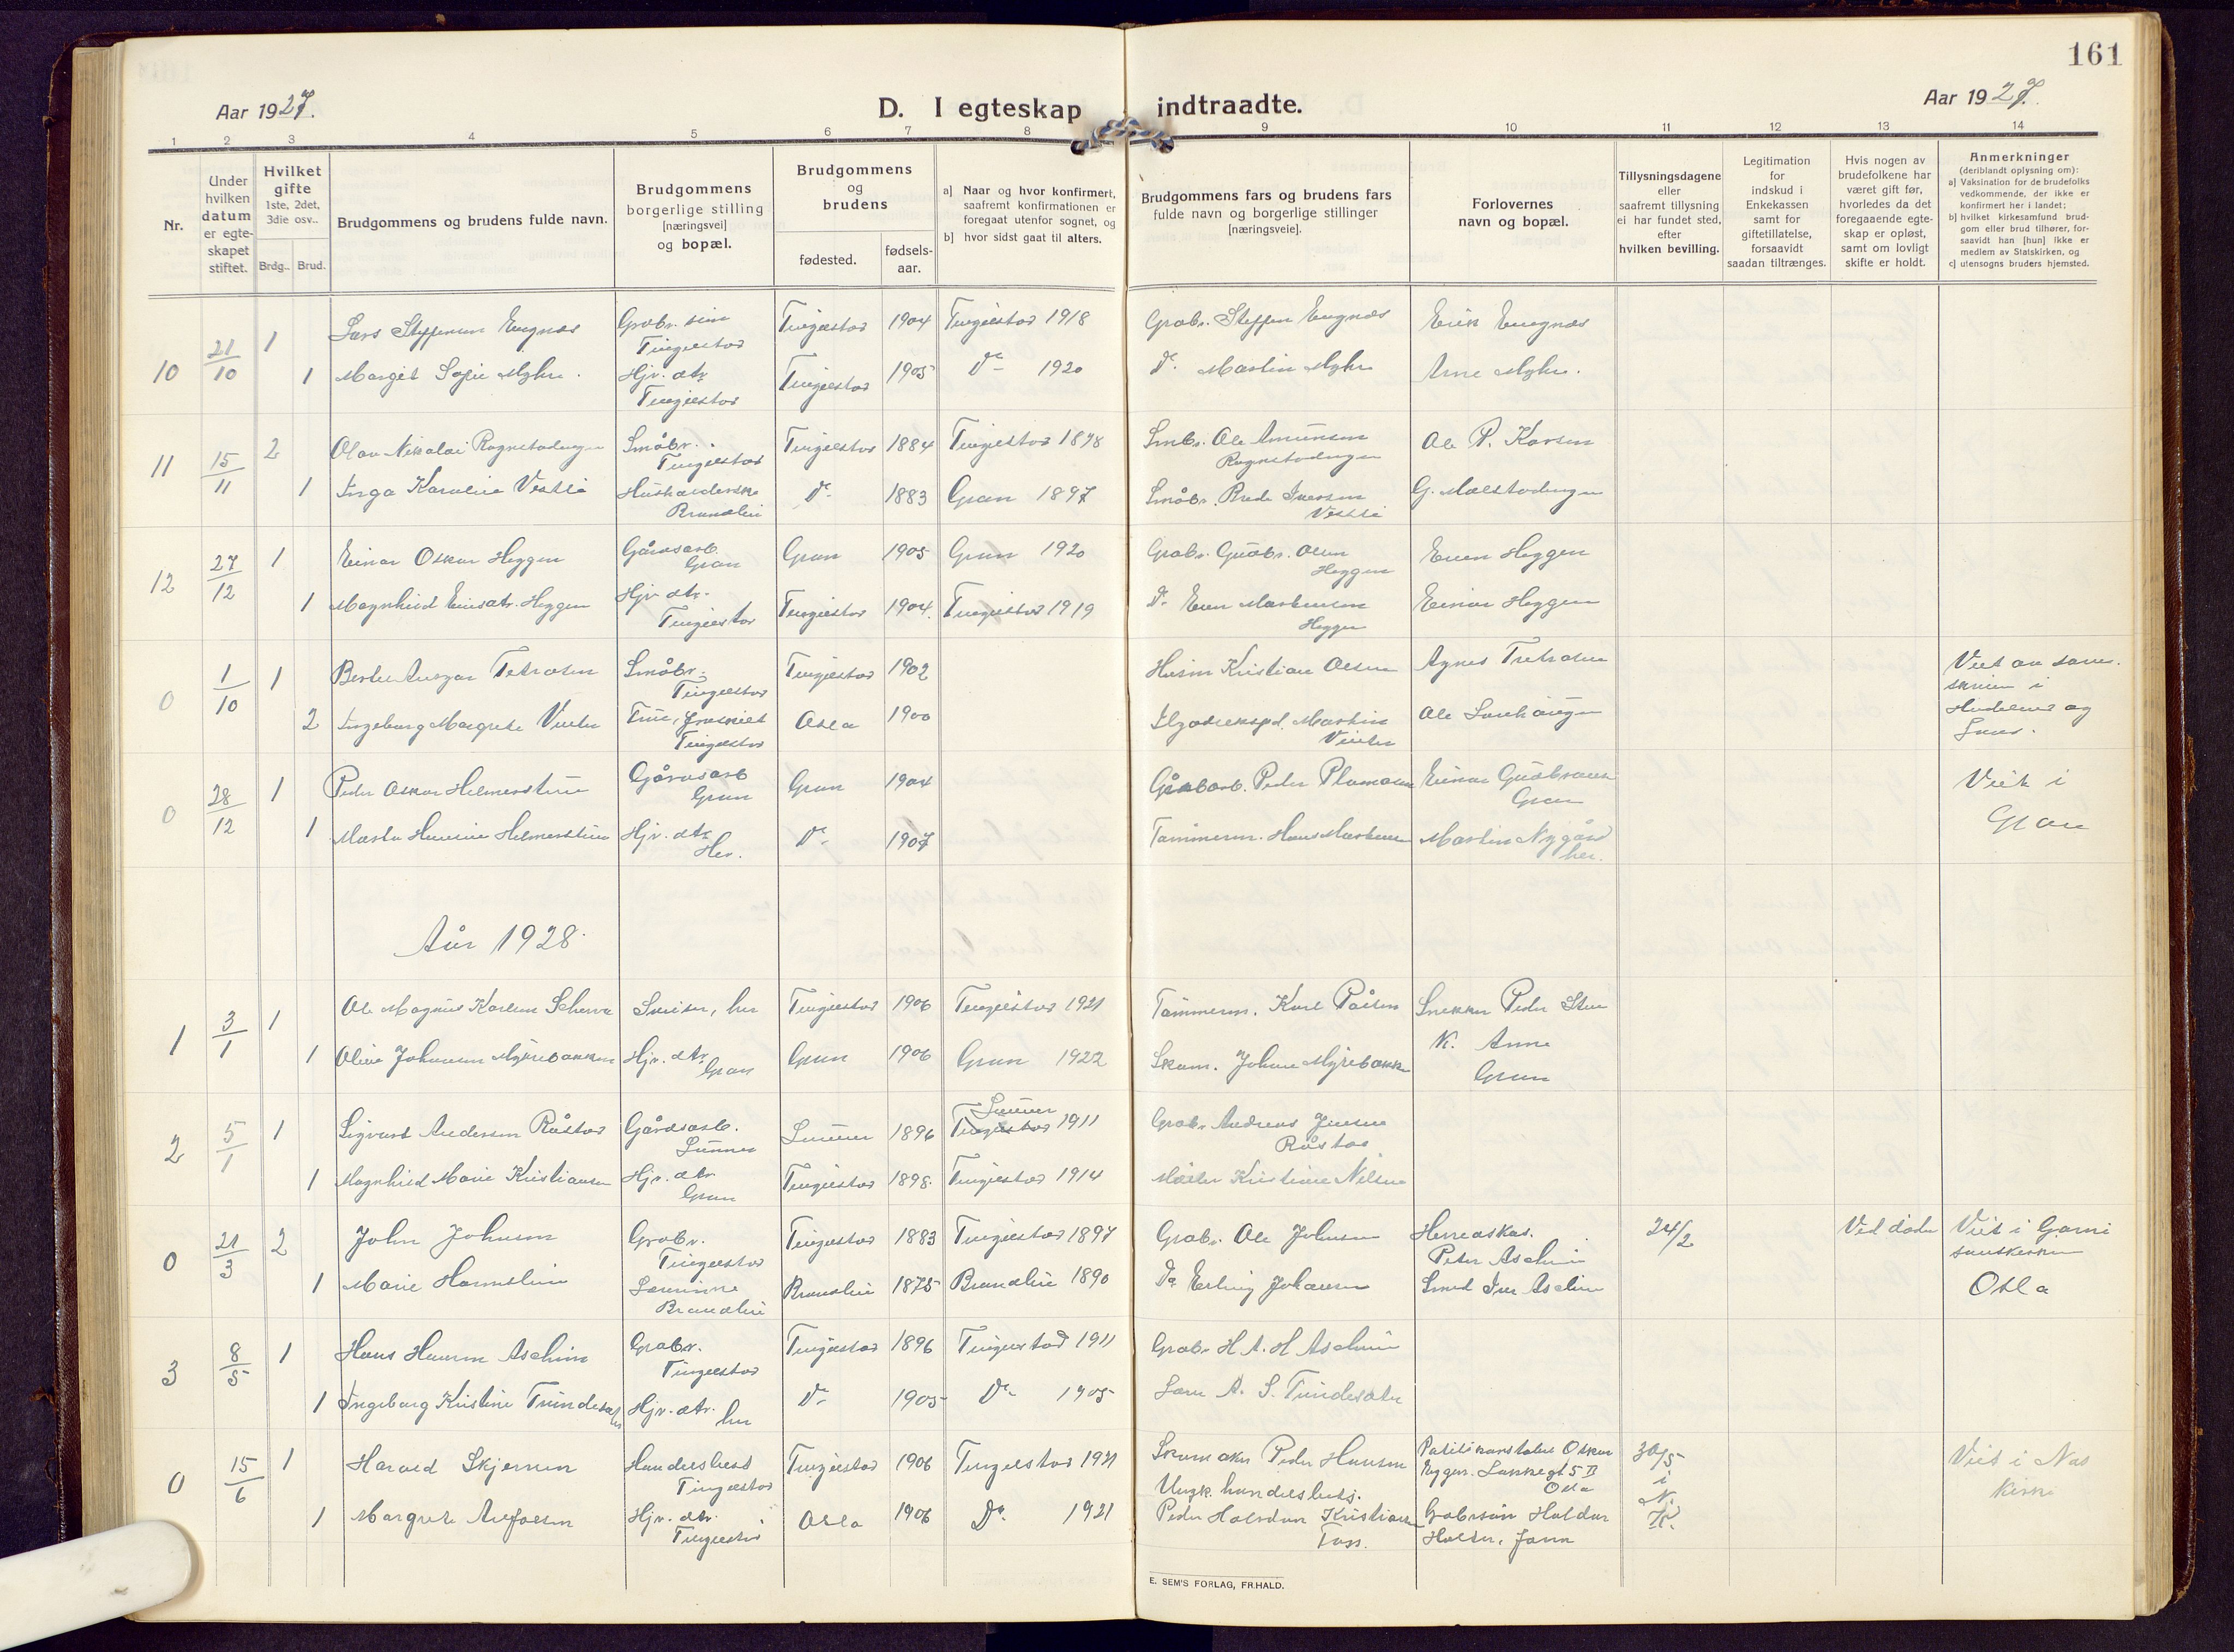 161
Aar 1927.
D. I egteskap indtraadte.
Aar 1927.
1 2 3 4 5 6 7 8 9 10 11 12 13 14
Nr.
Under hvilken datum er egte-skapet stiftet.
Hvilket gifte 1ste, 2det, 3die osv..
Brdg.. Brud.
Brudgommens og brudens fulde navn.
Brudgommens borgerlige stilling [næringsvei] og bopæl.
Brudgommens og brudens
fødested. fødsels-aar.
a] Naar og hvor konfirmert, saafremt konfirmationen er foregaat utenfor sognet, og
b] hvor sidst gaat til alters.
Brudgommens fars og brudens fars fulde navn og borgerlige stillinger [næringsveie].
Forlovernes navn og bopæl.
Tillysningsdagene eller saafremt tillysning ei har fundet sted, efter hvilken bevilling.
Legitimation for indskud i Enkekassen samt for giftetillatelse, forsaavidt saadan tiltrænges.
Hvis nogen av brudefolkene har været gift før, hvorledes da det foregaaende egte-skap er opløst, samt om lovligt skifte er holdt.
Anmerkninger
(deriblandt oplysning om):
a] Vaksination for de brudefolks vedkommende, der ikke er konfirmert her i landet;
b] hvilket kirkesamfund brud-gom eller brud tilhører, for-saavidt han [hun] ikke er medlem av Statskirken, og
c] utensogns bruders hjemsted.
10 21/10 1 Lars Steffensen Engnæs Grobr. søn Tingelstad Tingelstad 1904 Tingelstad 1918 Grobr. Steffen Engnæs Erik Engnæs
1 Margit Sofie Myhre. Hjv. dtr. Tingelstad Tingelstad 1905 Do 1920 Do Martin Myhre Arne Myhre.
11 15/11 2 Olav Nikolai Rognstadengen Småbr. Tingelstad Tingelstad 1884 Tingelstad 1898 Småbr. Ole Amundsen Rognstadengen Ole P. Karsen
1 Inga Karoline Vestli Husholderske Brandbu Do 1883 Gran 1897 Småbr. Iversen Vestli G. Molstadengen
12 27/12 1 Einar Oskar Heggen Gårdsarb. Gran Gran 1905 Gran 1920 Grobr. Gudbr. Olsen Heggen Even Heggen
1 Magnhild Heggen Hjv. dtr. Tingelstad Tingelstad 1904. Tingelstad 1919 Do Even Martinsen Heggen Einar Heggen
0 1/10 1 Ansgar Småbr. Tingelstad Tingelstad 1902 Kristian Olsen Agnes Viet av soren-skriver i Hadeland og Land.
2 Ingeborg Margrete Frue, fraskilt Tingelstad Oslo 1900 Martin Ole
0 28/12 1 Peder Oskar Helmerstuen Gårdsarb Gran Gran 1904 Gårdarb. Peder Einar Gudbrandsen Gran Viet i Gran
1 Marta Helmerstuen Hjv. dtr. Her. Do 1907 Tømmerm. Hans Martinsen Martin Nygård her.
Aår 1928.
1 3/1 1 Ole Magnus Karlsen Snekker, her Tingelstad 1906 Tingelstad 1921 Tømmerm. Karl Pålsen Snekker Peder
1 Oline Johansen Myrebakken Hjv. dtr. Gran Gran 1906 Gran 1922 Skom. Johan Myrebakken K. Anne Gran
2 5/1 1 Sigvart Andersen Råstad Gårdsarb. Lunner Lunner 1896 Lunner Tingelstad 1911 Grobr. Andreas Jensen Råstad
1 Magnhild Marie Kristiansen Hjv. dtr. Gran Tingelstad 1898 Tingelstad 1914 Møller Kristian Nilsen
0 21/3 2 John Johnsen Grobr. Tingelstad Tingelstad 1883 Tingelstad 1897 Grobr. Ole Johnsen Herredskas. Peter Aschim 24/2 Ved død Viet i Garnisonskirken Oslo
1 Marie Lærerinne Brandbu Brandbu 1875 Brandbu 1890 Do Erling Johansen Smed Iver Aschim
3 8/5 1 Hans Hansen Aschim Grobr. Tingelstad Tingelstad 1896 Tingelstad 1911 Grobr. H. A. H. Aschim
1 Ingeborg Kristine Hjv. dtr. her Do 1905 Do 1905 A. S.
0 15/6 1 Harald Skjerven Handelsbest Tingelstad Tingelstad 1906 Tingelstad 1921 Skomaker Peder Hansen Politikonstabel Oskar Oslo 30/5 i N. K. Viet i Nes Kirke
1 Margrete Hjv. dtr. Tingelstad Oslo 1906 Do 1921 Ungk. handelsbetj. Peder Halvdan Kristiansen Foss. Grobrsøn Haldor
E. SEM'S FORLAG, FR.HALD.